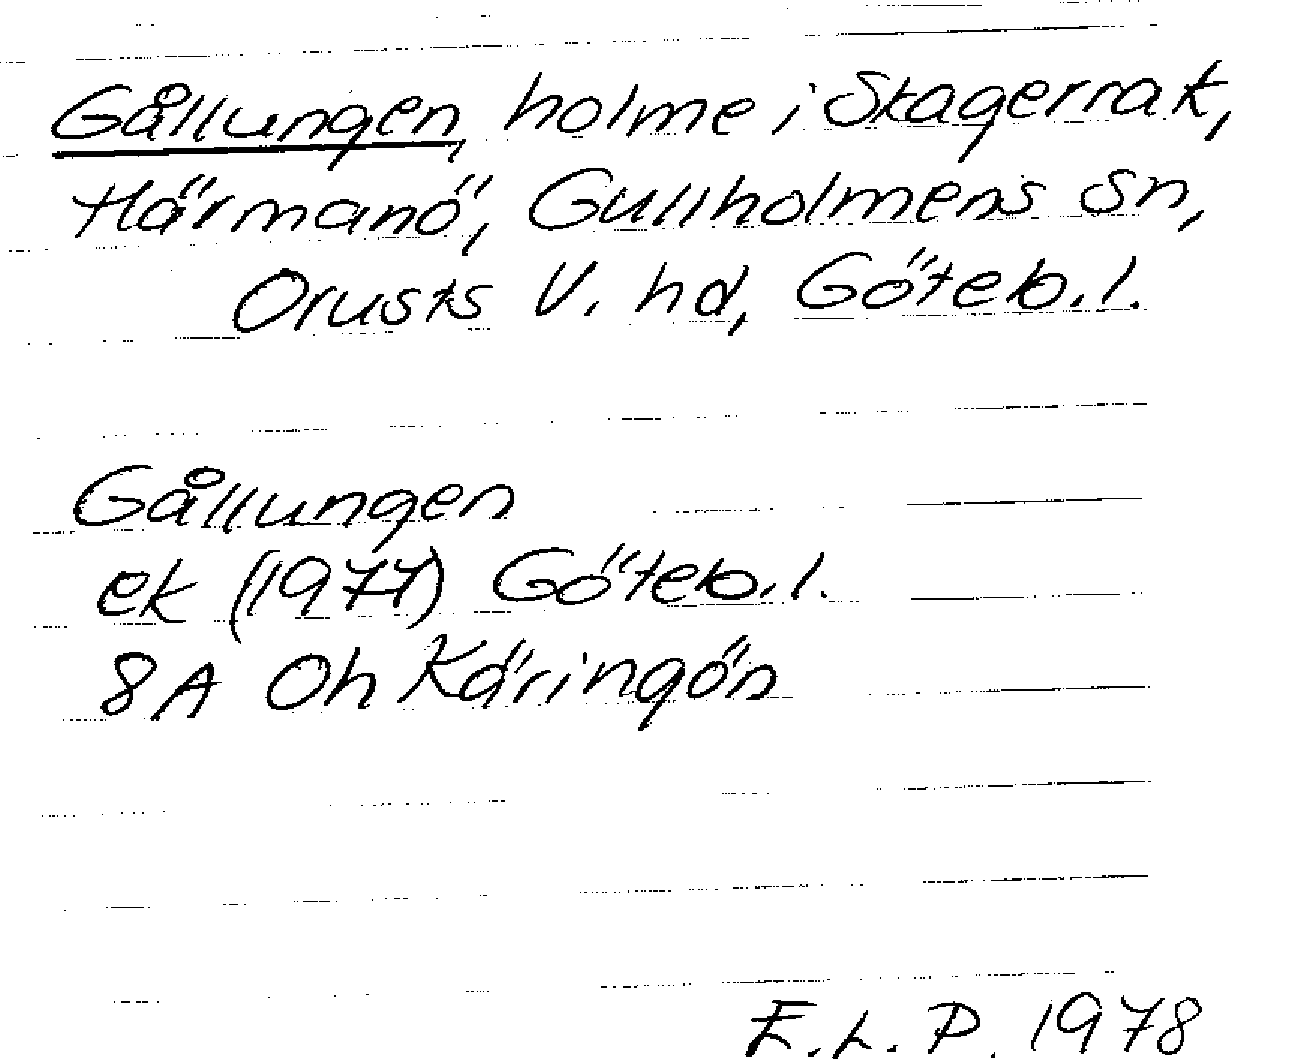 Gållungen, holme i Skagerrak,
Härmanö, Gullholmens sn,
Orusts V. hd, Göteb.l.
Gållungen
ek (1977) Göteb.l.
8A Oh Käringön
E.L.P. 1978